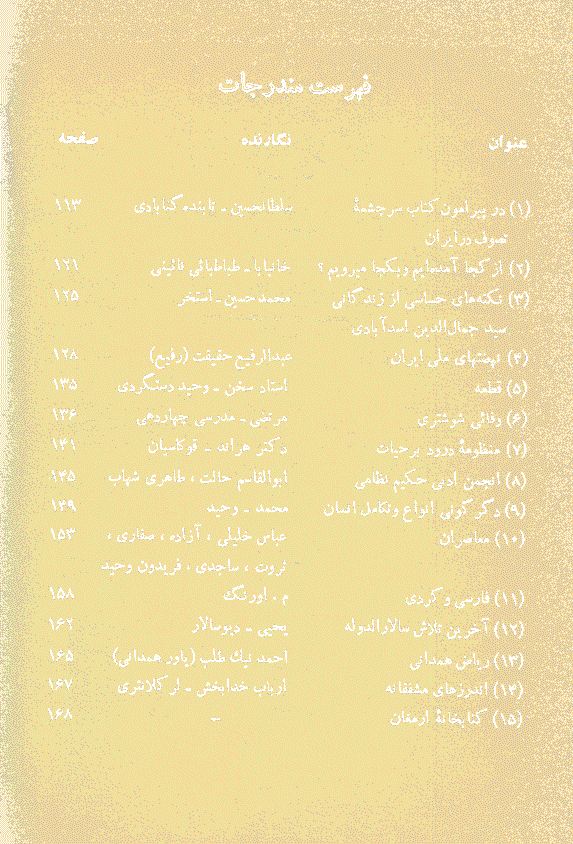 فهرست مندرجات
عنوان نگارنده صفحه
(۱) در پیرامون کتاب سرچشمهٔ سلطانحسین ـ تابنده گنابادی ۱۱۳
تصوف در ایران
(۲) از کجا آمده‌ایم و بکجا میرویم ؟ خانبابا ـ طباطبائی نائینی ۱۲۱
(۳) نکته‌های حساسی از زندگانی محمدحسین ـ استخر ۱۲۵
سید جمال‌الدین اسدآبادی
(۴) نهضتهای ملی ایران عبدالرفیع حقیقت (رفیع) ۱۲۸
(۵) قطعه استاد سخن ـ وحید دستگردی ۱۳۵
(۶) وفائی شوشتری مرتضی ـ مدرسی چهاردهی ۱۳۶
(۷) منظومهٔ درود بر حیات دکتر هراند ـ قوکاسیان ۱۴۱
(۸) انجمن ادبی حکیم نظامی ابوالقاسم حالت ، طاهری شهاب ۱۴۵
(۹) دگرگونی انواع و تکامل انسان محمد ـ وحید ۱۴۹
(۱۰) معاصران عباس خلیلی ، آزاده ، صفاری ، ۱۵۳
ثروت ، ساجدی ، فریدون وحید
(۱۱) فارسی و کردی م . اورنگ ۱۵۸
(۱۲) آخرین تلاش سالارالدوله یحیی ـ دیوسالار ۱۶۲
(۱۳) ریاض همدانی احمد نیک طلب (یاور همدانی) ۱۶۵
(۱۴) اندرزهای مشفقانه ارباب خدابخش ـ لرکلانتری ۱۶۷
(۱۵) کتابخانهٔ ارمغان ـ ۱۶۸